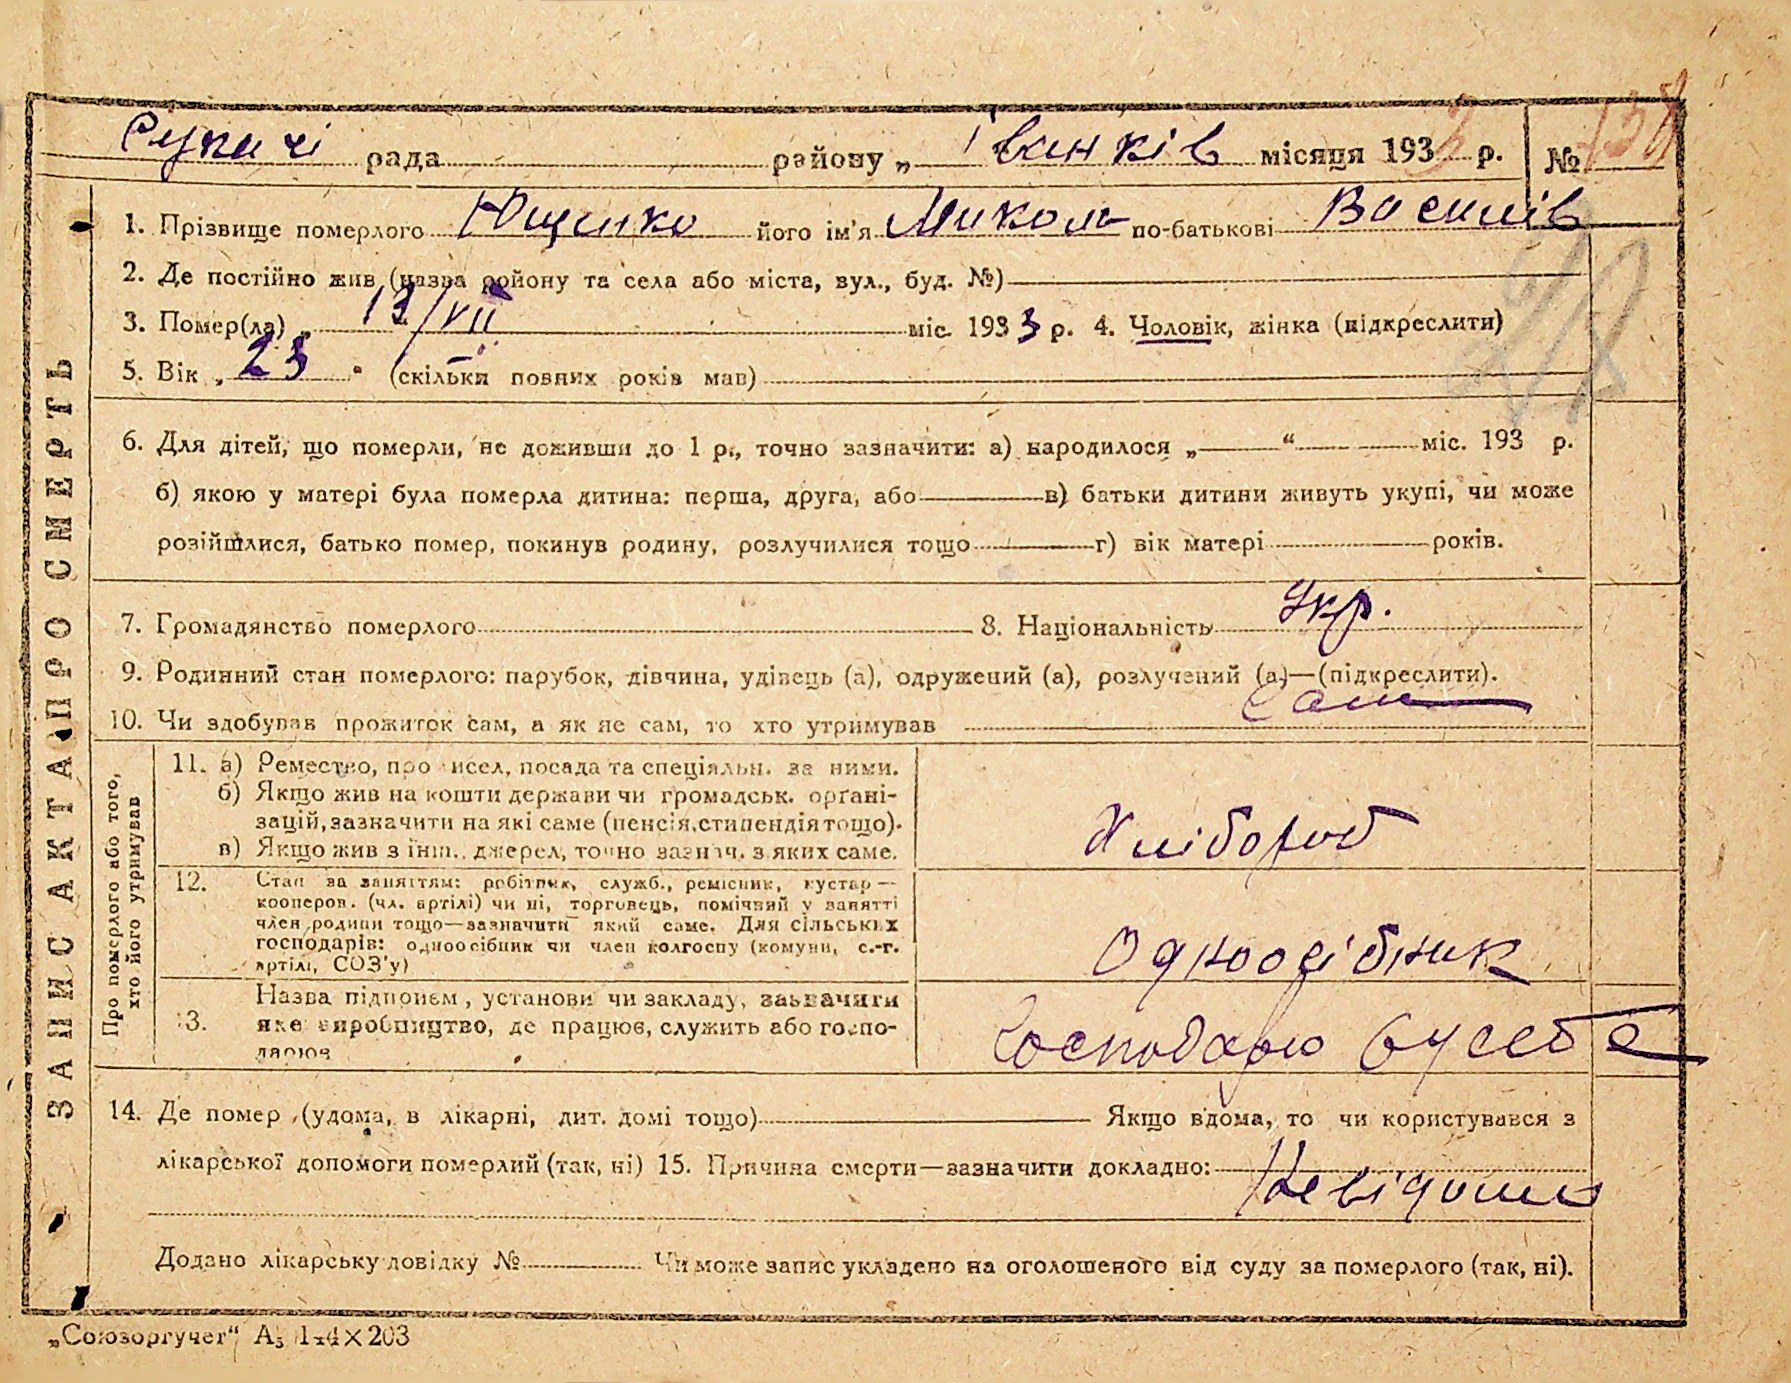 Сукачі рада району „ Іванків місяця 1933 р. № 138
ЗАПИС АКТА ПРО СМЕРТЬ
1. Прізвище померлого Ющенко його ім'я Микола по-батькові Василів
2. Де постійно жив (назва району та села або міста, вул., буд. №)
3. Помер(ла) „ 13/VII міс. 1933 р. 4. Чоловік, жінка (підкреслити)
5. Вік „ 23 " (скільки повних років мав)
6. Для дітей, що померли, не доживши до 1 р., точно зазначити: а) народилося „ “ міс. 193 р.
б) якою у матері була померла дитина: перша, друга, або в) батьки дитини живуть укупі, чи може
розійшлися, батько помер, покинув родину, розлучилися тощо г) вік матері років.
7. Громадянство померлого 8. Національність Укр.
9. Родинний стан померлого: парубок, дівчина, удівець (а), одружений (а), розлучений (а)—(підкреслити).
10. Чи здобував прожиток сам, а як не сам, то хто утримував Сам
Про померлого або того,
хто його утримував
11. а) Ремество, про исел, посада та спеціяльн. за ними.
б) Якщо жив на кошти держави чи громадськ. орґані-
зацій, зазначити на які саме (пенсія, стипендія тощо).
в) Якщо жив з інш. джерел, точно зазнач. з яких саме.
Хлібороб
12. Стан за заняттям: робітник, служб., ремісник, кустар —
кооперов. (чл. артілі) чи ні, торговець, помічний у занятті
член родини тощо—зазначити який саме. Для сільських
господарів: одноосібник чи член колгоспу (комуни, с.-г.
артілі, СОЗ'у)
Одноосібник
13. Назва підприєм, установи чи закладу, зазначити
яке виробництво, де працює, служить або госпо-
дарює
Господарю у себе
14. Де помер (удома, в лікарні, дит. домі тощо) Якщо вдома, то чи користувався з
лікарської допомоги померлий (так, ні) 15. Причина смерти—зазначити докладно:
Невідома
Додано лікарську довідку № Чи може запис укладено на оголошеного від суду за померлого (так, ні).
„Союзоргучет“ А5 1 4×203